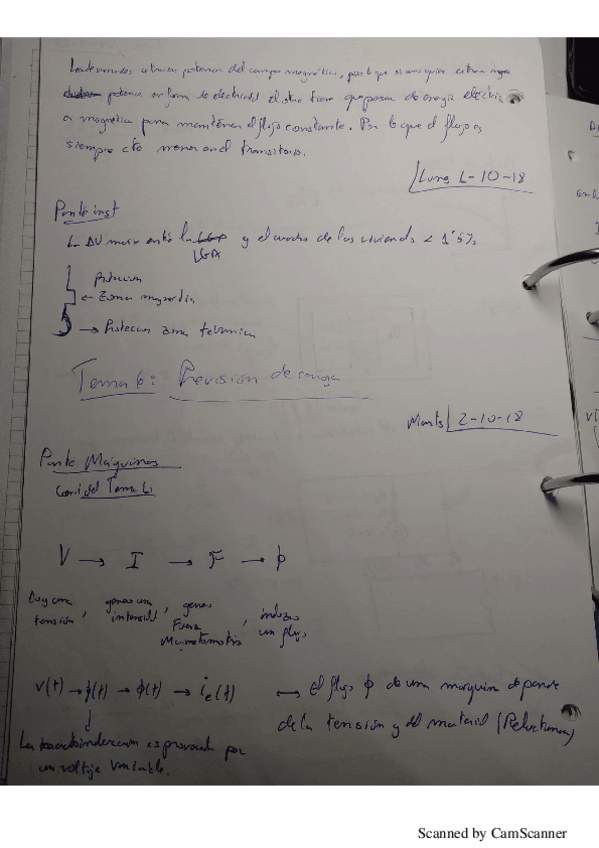 potencia del campo magnético, por lo que si uno quiere extraer
potencia en forma de electricidad el otro tiene que pasar de energía electrica
a magnética para mantener el flujo constante. Por lo que el flujo es
siempre cte menos en el transitorio.
Lunes 1-10-18
Parte inst
ΔU max entre la y el cuadro de las viviendas < 1'5%
LGA
← Zona magnetica
→ Proteccion zona térmica
Tema 6: Previsión de carga
Martes 2-10-18
Parte Máquinas
del Tema
V → I → F → ϕ
tensión, genera una intensidad, genera Fuerza Magnetomotriz, un flujo
v(t) → (t) → ϕ(t) → i_e(t) → El flujo ϕ de una maquina depende
de la tensión y del material (Reluctancia)
La es provocada por
un voltaje variable.
Scanned by CamScanner